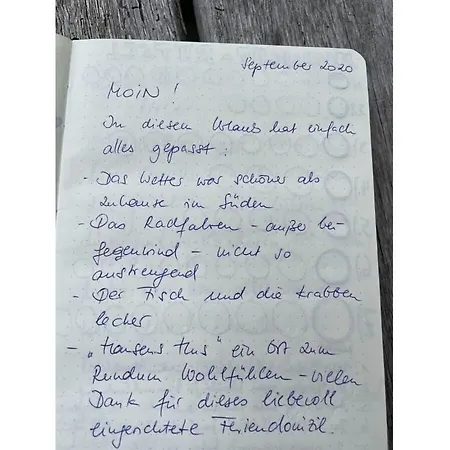 September 2020
MOIN !
In diesem Urlaub hat einfach
alles gepasst:
- Das Wetter war schöner als
zuhause im Süden
- Das Radfahren - außer bei
Gegenwind - nicht so
anstrengend
- Der Fisch und die Krabben
lecker
- „Hansens Hus" ein Ort zum
Rundum Wohlfühlen - vielen
Dank für dieses liebevoll
eingerichtete Feriendomizil.